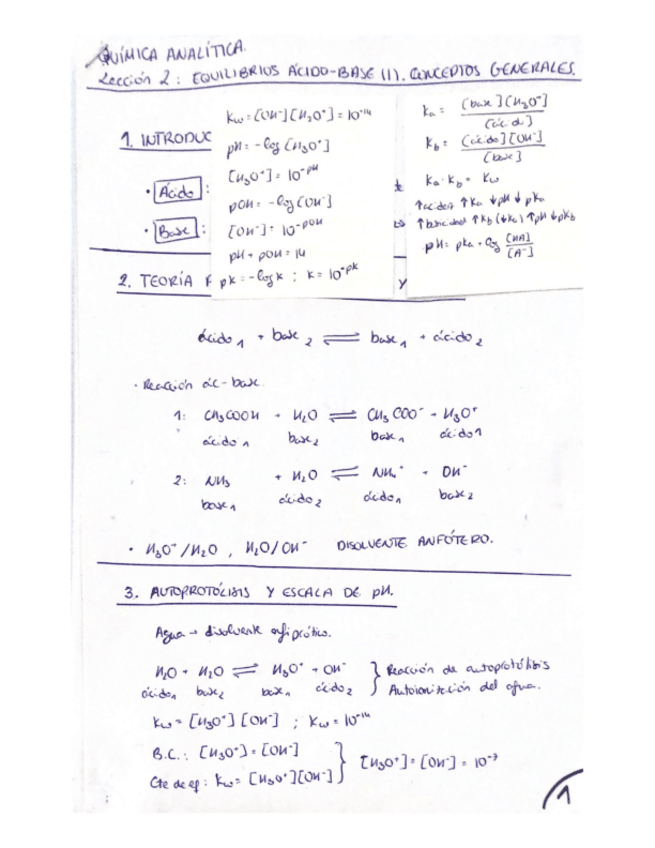 QUÍMICA ANALÍTICA.
Lección 2: EQUILIBRIOS ÁCIDO-BASE (I). CONCEPTOS GENERALES.
1. INTRODUC
· Ácido :
· Base :
Kw = [OH⁻][H₃O⁺] = 10⁻¹⁴
pH = -log [H₃O⁺]
[H₃O⁺] = 10^-pH
pOH = -log [OH⁻]
[OH⁻] = 10^-pOH
pH + pOH = 14
pK = -log K ; K = 10^-pK
Ka = [base][H₃O⁺] / [ácido]
Kb = [ácido][OH⁻] / [base]
Ka · Kb = Kw
↑acidez ↑Ka ↓pH ↓pKa
↑basicidad ↑Kb (↓Ka) ↑pH ↓pKb
pH = pKa + log [HA] / [A⁻]
2. TEORÍA
Y
ácido₁ + base₂ ⇌ base₁ + ácido₂
· Reacción ác-base.
1: CH₃COOH + H₂O ⇌ CH₃COO⁻ + H₃O⁺
ácido₁ base₂ base₁ ácido₁
2: NH₃ + H₂O ⇌ NH₄⁺ + OH⁻
base₁ ácido₂ ácido₁ base₂
· H₃O⁺/H₂O , H₂O/OH⁻ DISOLVENTE ANFÓTERO.
3. AUTOPROTÓLISIS Y ESCALA DE pH.
Agua → disolvente anfiprótico.
H₂O + H₂O ⇌ H₃O⁺ + OH⁻ } Reacción de autoprotólisis
ácido₁ base₂ base₁ ácido₂ Autoionización del agua.
Kw = [H₃O⁺][OH⁻] ; Kw = 10⁻¹⁴
B.C.: [H₃O⁺] = [OH⁻] } [H₃O⁺] = [OH⁻] = 10⁻⁷
Cte de eq: Kw = [H₃O⁺][OH⁻]
1